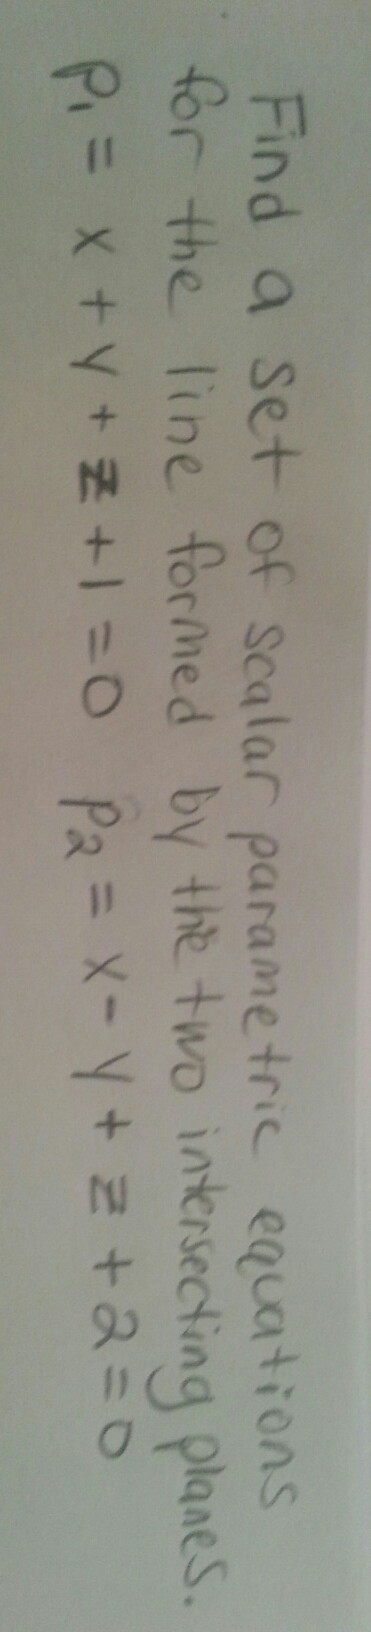 Find a set of scalar parametric equations
for the line formed by the two intersecting planes.
P₁ = x + y + z + 1 = 0 P₂ = x - y + z + 2 = 0